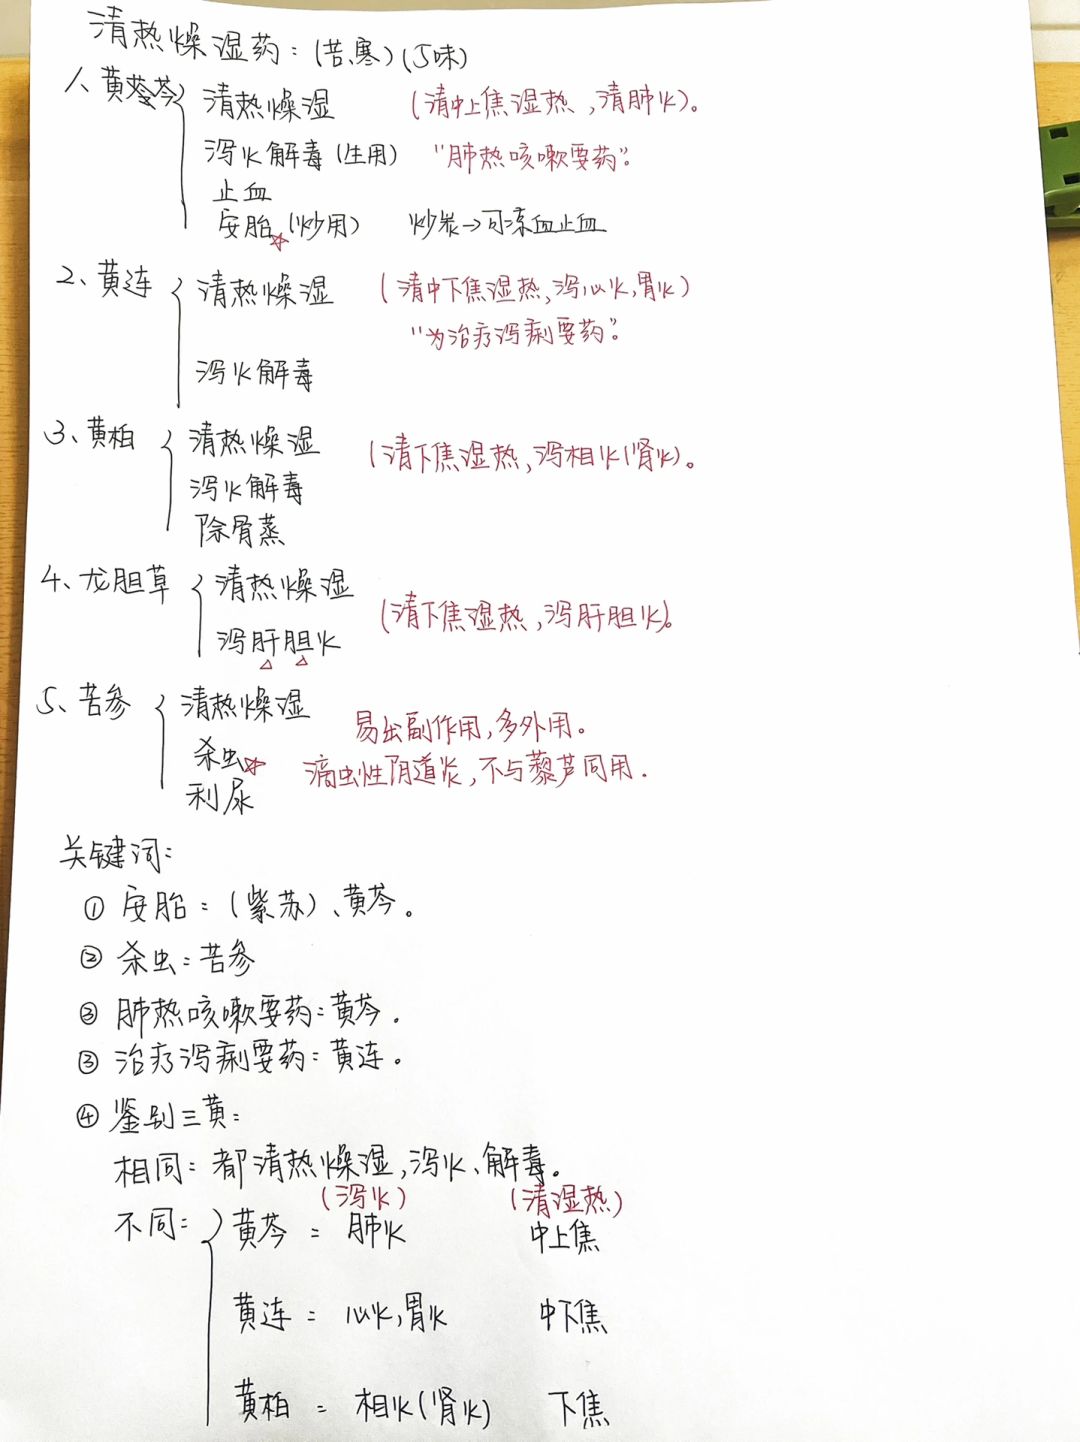 清热燥湿药:(苦、寒)(5味)
1、黄芩 清热燥湿 (清中上焦湿热,清肺火)。
泻火解毒(生用) “肺热咳嗽要药”。
止血
安胎☆(炒用) 炒炭→可凉血止血
2、黄连 清热燥湿 (清中下焦湿热,泻心火,胃火)
“为治疗泻痢要药”。
泻火解毒
3、黄柏 清热燥湿 (清下焦湿热,泻相火(肾火)。
泻火解毒
除骨蒸
4、龙胆草 清热燥湿
泻肝胆火 (清下焦湿热,泻肝胆火)。
△ △
5、苦参 清热燥湿 易出副作用,多外用。
杀虫☆ 滴虫性阴道炎,不与藜芦同用.
利尿
关键词:
① 安胎:(紫苏)、黄芩。
② 杀虫:苦参
③ 肺热咳嗽要药:黄芩.
③ 治疗泻痢要药:黄连.
④ 鉴别三黄:
相同:都清热燥湿,泻火、解毒。
(泻火) (清湿热)
不同: 黄芩 = 肺火 中上焦
黄连 = 心火,胃火 中下焦
黄柏 = 相火(肾火) 下焦